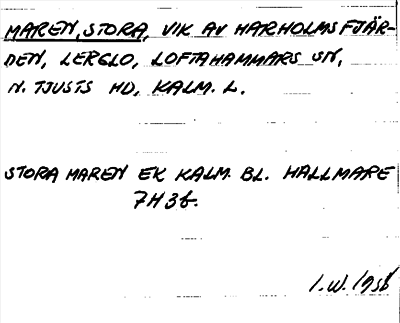 MAREN, STORA, VIK AV HARHOLMSFJÄR-
DEN, LERGLO, LOFTAHAMMARS SN,
N. TJUSTS HD, KALM. L.
STORA MAREN EK KALM. BL. HALLMARE
7H3f.
I.W. 1956